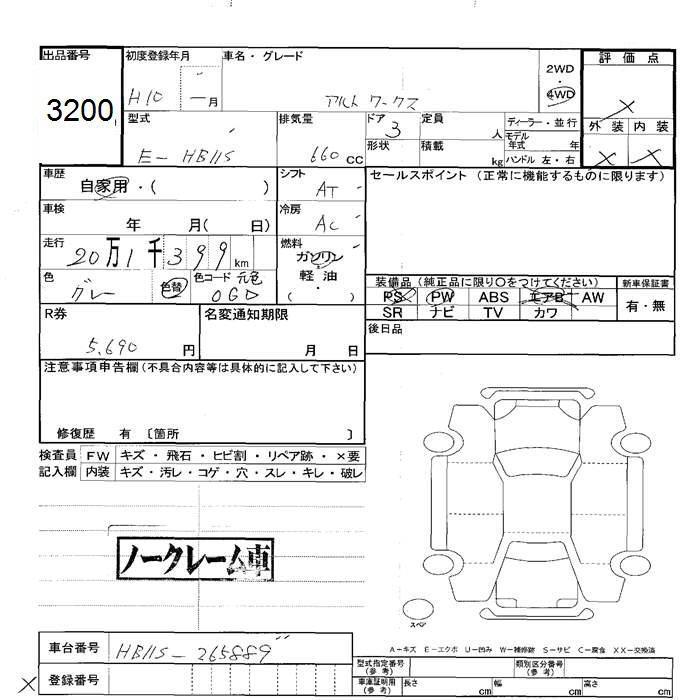 出品番号 初度登録年月 車名・グレード 評価点
3200 H10 年 一月 アルト ワークス 2WD・4WD ×
型式 排気量 ドア 定員 ディーラー・並行 外装 内装
E-HB11S 660 CC 3 人 モデル年式 年 × ×
形状 積載 kg ハンドル 左・右
車歴 シフト セールスポイント (正常に機能するものに限ります)
自家用・( ) AT
車検 冷房
年 月( 日) AC
走行 燃料
20万1千399km ガソリン・軽油・( )
色 色替 色コード 元色
グレー 0G0
装備品 (純正品に限り○をつけてください) 新車保証書
PS PW ABS エアB AW 有・無
SR ナビ TV カワ
R券 名変通知期限 後日品
5,690 円 月 日
注意事項申告欄 (不具合内容等は具体的に記入して下さい)
修復歴 有 〔箇所 〕
検査員 FW キズ・飛石・ヒビ割・リペア跡・×要
記入欄 内装 キズ・汚レ・コゲ・穴・スレ・キレ・破レ
ノークレーム車
スペア
A-キズ E-エクボ U-凹み W-補修跡 S-サビ C-腐食 XX-交換済
車台番号 HB11S-265889
× 登録番号
型式指定番号(参考) 類別区分番号(参考)
車庫証明用(参考) 長さ cm 幅 cm 高さ cm